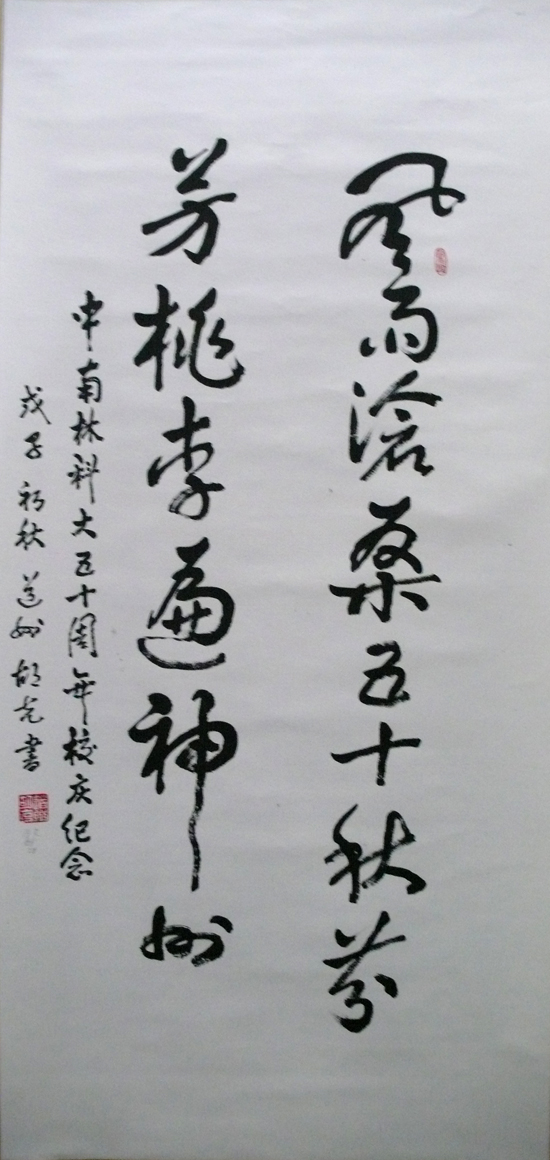 风雨沧桑五十秋芬
芳桃李遍神州
中南林科大五十周年校庆纪念
戊子初秋道州胡克書